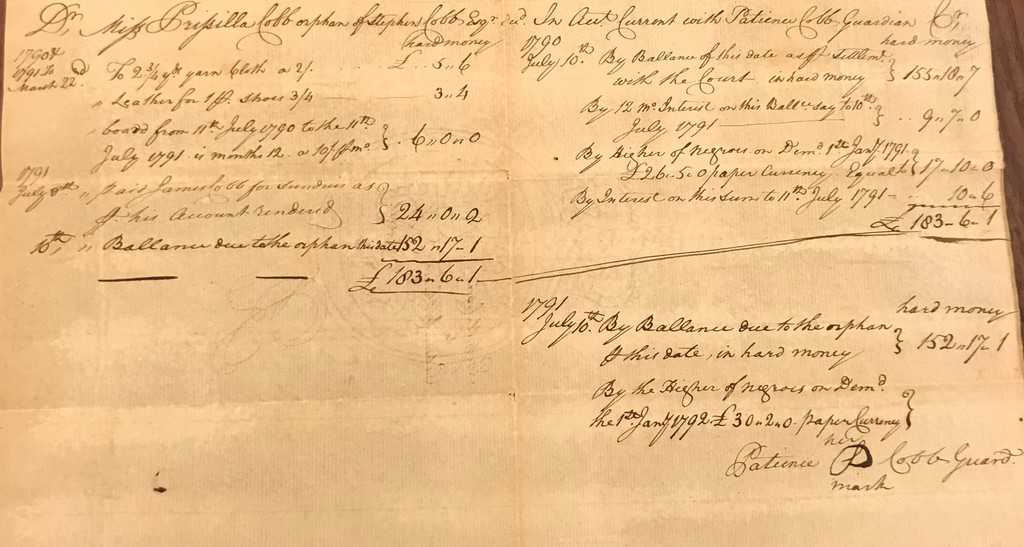 Dr, Miss Prissilla Cobb orphan of Stephen Cobb Esqr. decd. In Acct Current with Patience Cobb Guardian Cr,
hard money
1790 &
1791 To
March 22nd
To 2 3/4 yds yarn Cloth a 2/. £ .. 5 " 6
" Leather for 1 pr. Shoes 3/4 3 " 4
" board from 11th July 1790 to the 11th
July 1791 is months 12 a 10/ p mo. } . 6 " 0 " 0
1791
July 8th " paid James Cobb for Sundries as
p his Account rendered } 24 " 0 " 0 2
10th, " Ballance due to the orphan this date 152 " 17 - 1
£ 183 " 6 " 1
hard money
1790
July 10th. By Ballance of this date as p Settlemt.
with the Court, in hard money } 155 " 18 " 7
By 12 mo. Interest on this Balle. say to 10th.
July 1791 } .. 9 " 7 " 0
By Higher of negroes on Demd. 1st Jany 1791
£26 " 5 " 0 paper Currency Equal to } 17 - 10 - 0
By Interest on this Sum to 11th. July 1791 - .. 10 " 6
£ 183 - 6 - 1
hard money
1791
July 10th. By Ballance due to the orphan
p this date, in hard money } 152 " 17 - 1
By the Higher of negroes on Demd.
the 1st Jany 1792 £ 30 " 2 " 0 . paper Currency }
her
Patience P Cobb Guard.
mark